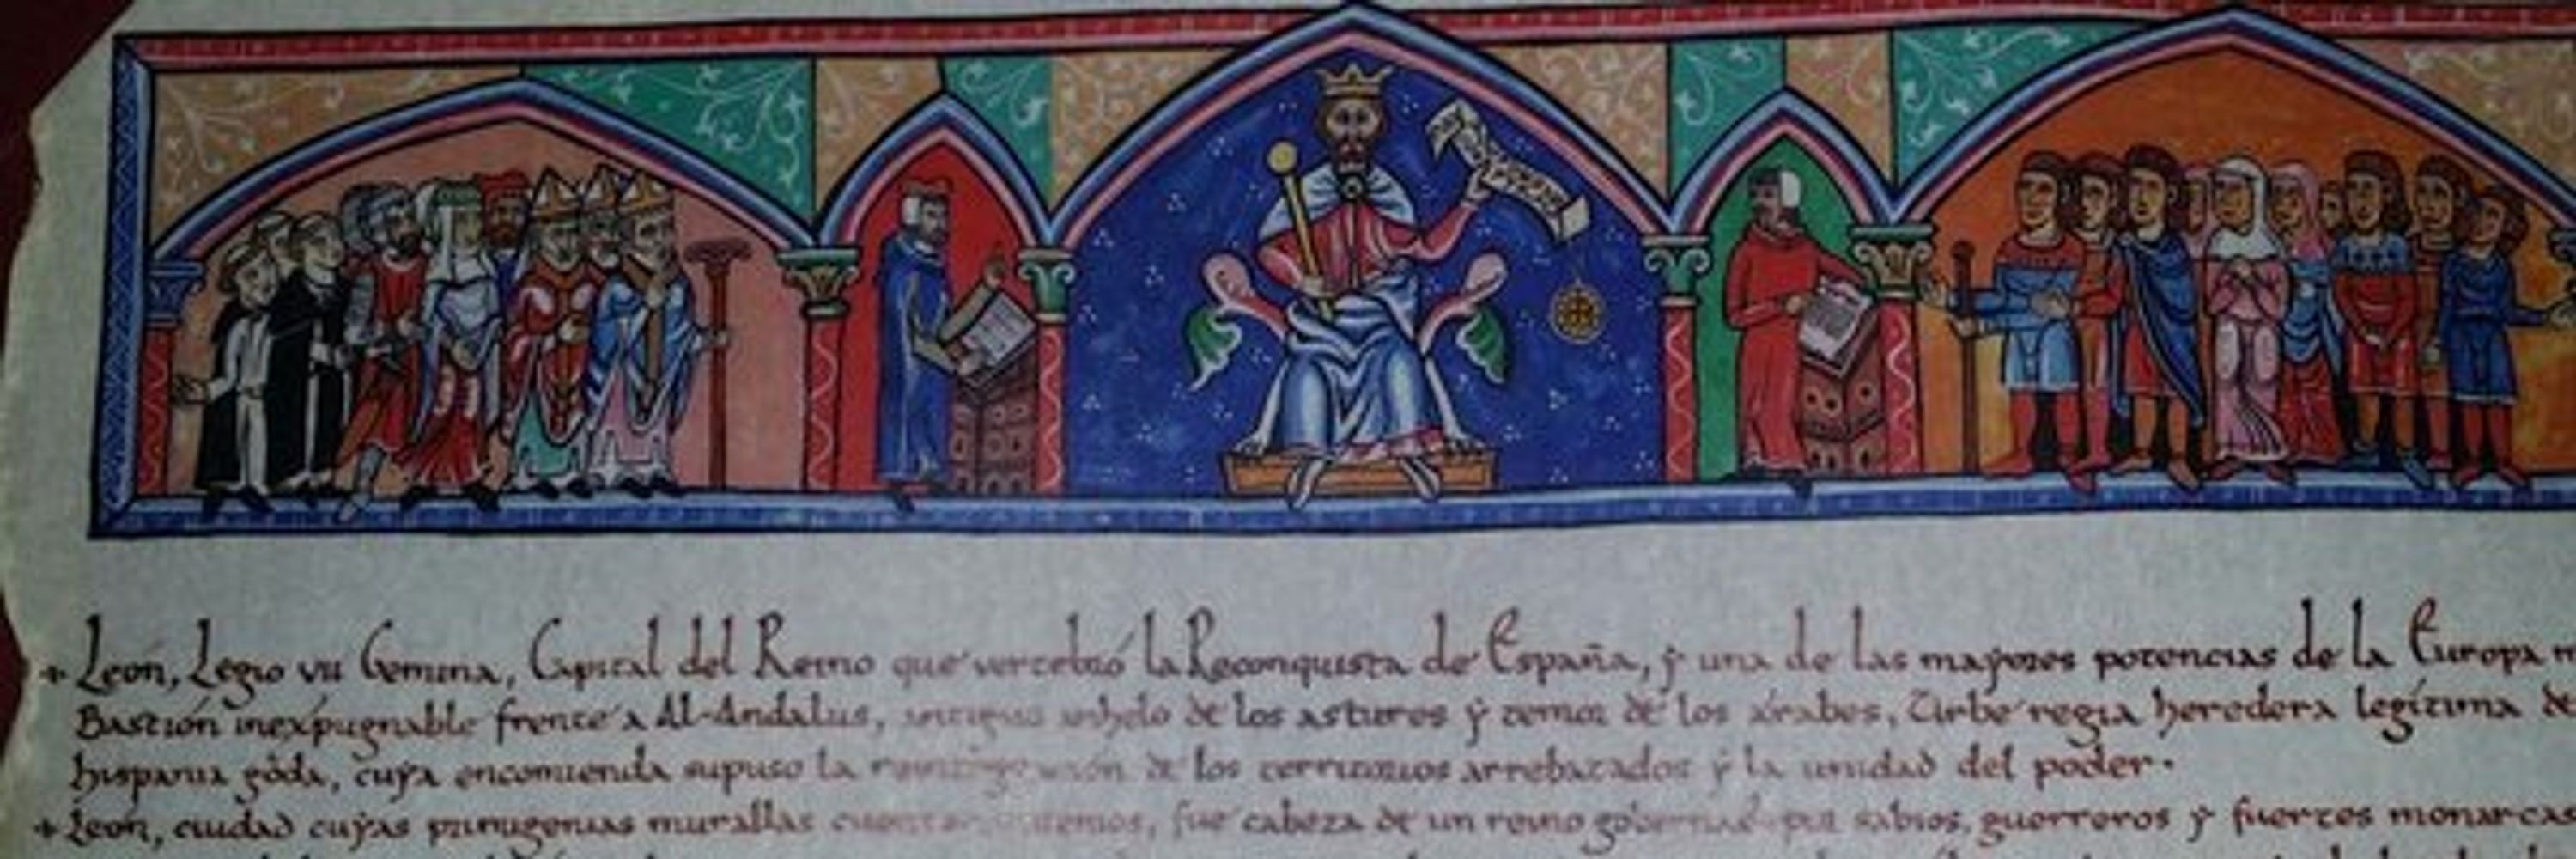 + León, Legio VII Gemina, Capital del Reino que vertebró la Reconquista de España, y una de las mayores potencias de la Europa
Bastión inexpugnable frente a Al-Andalus, antiguo anhelo de los astures y temor de los árabes, Urbe regia heredera legítima de
hispania goda, cuya encomienda supuso la reintegración de los territorios arrebatados y la unidad del poder.
+ León, ciudad cuyas primigenias murallas fue cabeza de un reino por sabios, guerreros y fuertes monarcas